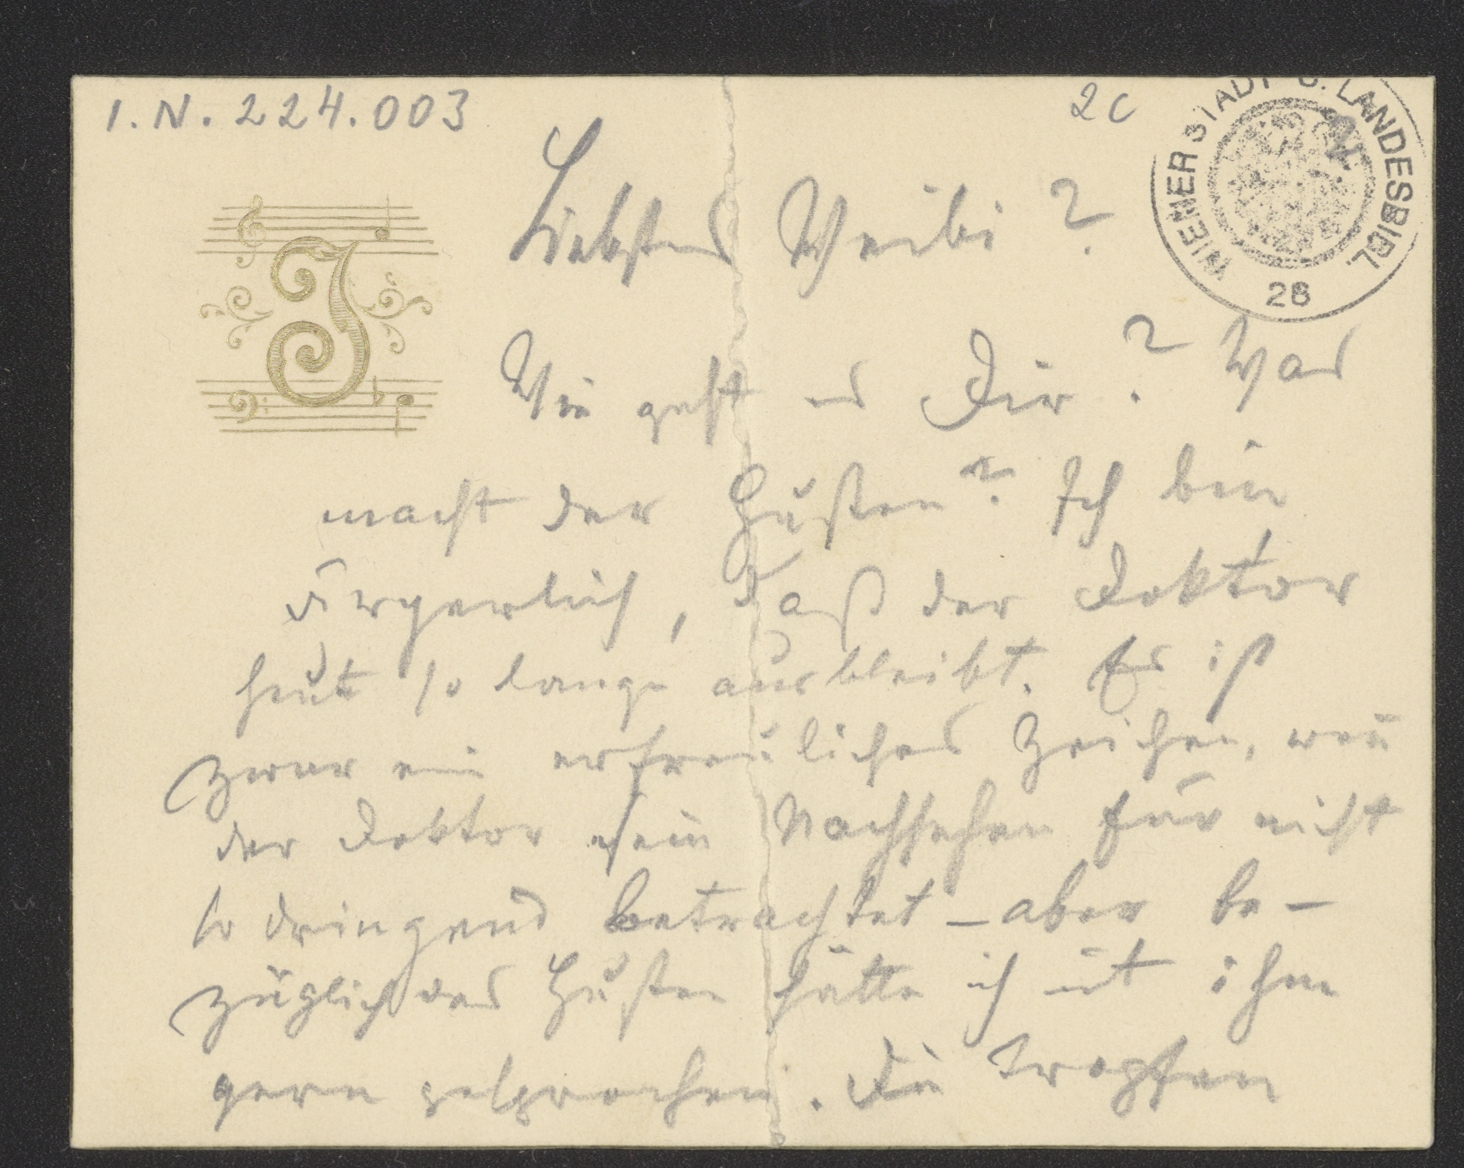 I.N. 224.003
2c
WIENER STADT- U. LANDESBIBL.
28
J
Liebstes Weibi?
Wie geht es Dir? Was
macht der Husten? Ich bin
ärgerlich, daß der Doktor
heute so lange ausbleibt. Es ist
zwar ein erfreuliches Zeichen, weñ
der Doktor sein Nachsehen für nicht
so dringend betrachtet – aber be-
züglich des Husten hätte ich mit ihm
gern gesprochen. Die Tropfen